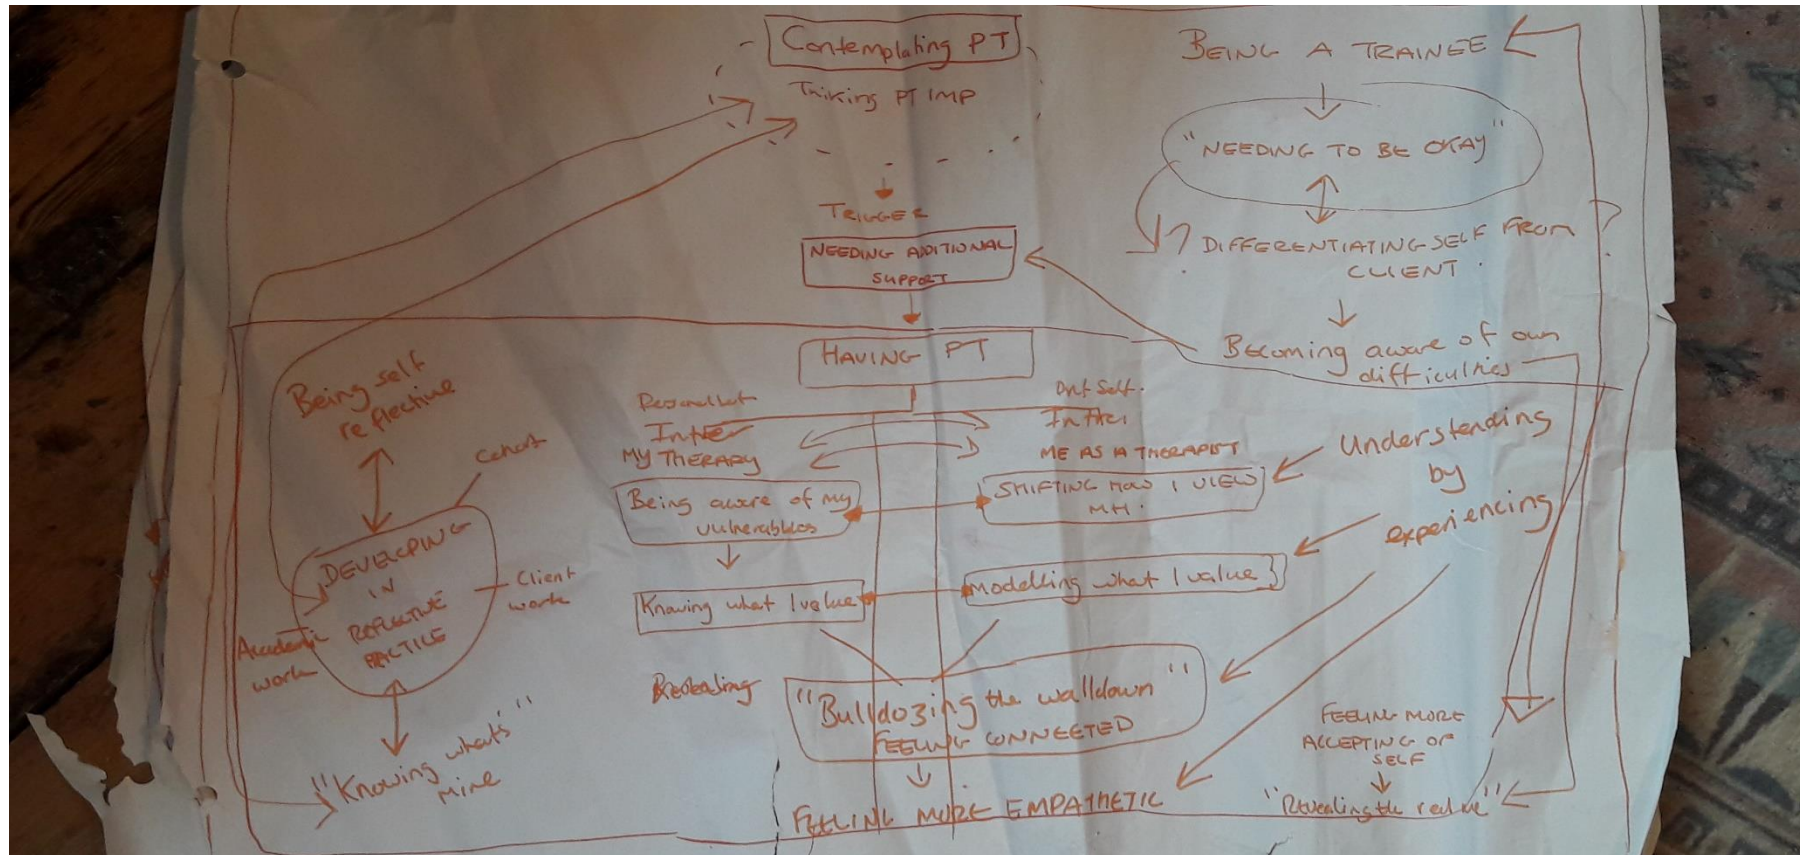 Contemplating PT
Thinking PT IMP
TRIGGER
NEEDING ADDITIONAL
SUPPORT
HAVING PT
BEING A TRAINEE
"NEEDING TO BE OKAY"
?
DIFFERENTIATING SELF FROM
CLIENT
Becoming aware of own
difficulties
Being self
reflective
Cohort
DEVELOPING
IN
REFLECTIVE
PRACTICE
Client
work
Academic
work
"Knowing what's"
mine
In the
MY THERAPY
Being aware of my
vulnerables
Knowing what I value
Self.
ME AS A THERAPIST
SHIFTING HOW I VIEW
MH.
Modelling what I value
Understanding
by
experiencing
"Bulldozing the walldown"
FEELING CONNECTED
FEELING MORE EMPATHETIC
FEELING MORE
ACCEPTING OF
SELF
"Revealing the real me"